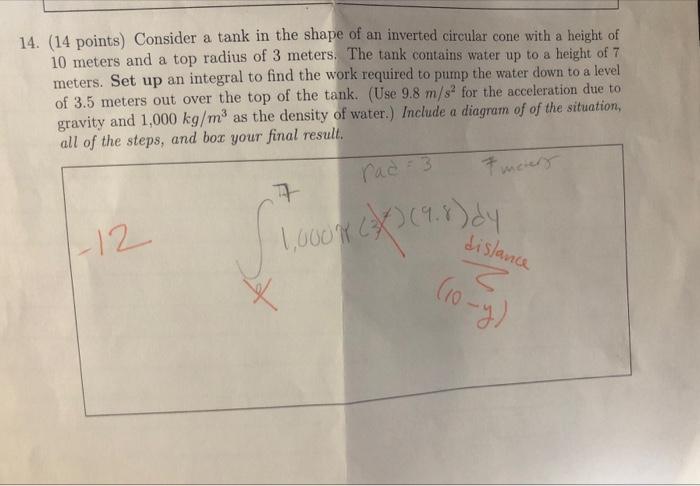 14. (14 points) Consider a tank in the shape of an inverted circular cone with a height of
10 meters and a top radius of 3 meters. The tank contains water up to a height of 7
meters. Set up an integral to find the work required to pump the water down to a level
of 3.5 meters out over the top of the tank. (Use 9.8 m/s² for the acceleration due to
gravity and 1,000 kg/m³ as the density of water.) Include a diagram of of the situation,
all of the steps, and box your final result.
rad = 3 7 meters
7
-12 ∫ 1,000π ( )(9.8)dy
distance
(10-y)